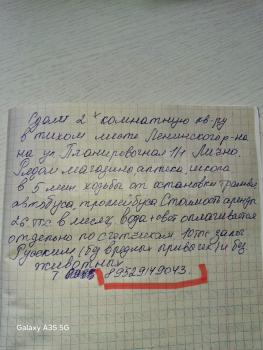 Сдам 2х комнатную кв-ру
в тихом месте Ленинского р-на
на ул Планировочная 1/1 Лично.
Рядом магазины, аптека, школа
в 5 мин ходьбы от остановки трамвая
автобуса, тролейбуса Стоимость аренды
26 тыс в месяц, вода+свет оплачивается
отдельно по счётчикам 10тыс залог
Русским (без вредных привычек) и без
животных
Т 89529149043.
Galaxy A35 5G